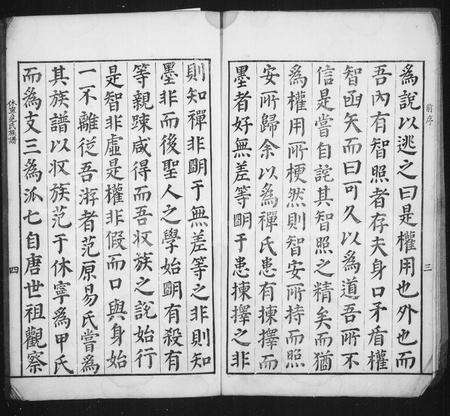 前序
三
爲說以逃之曰是權用也外也而
吾內有智照者存夫身口矛盾權
智函矢而曰可久以爲道吾所不
信是嘗自詫其智照之精矣而猶
爲權用所梗然則智安所持而照
安所歸余以爲禪氏患有揀擇而
墨者好無差等明于患揀擇之非
則知禪非明于無差等之非則知
墨非而後聖人之學始明有殺有
等親踈咸得而吾收族之說始行
是智非虛是權非假而口與身始
一不離從吾游者范原易氏嘗爲
其族譜以收族范于休寧爲甲氏
而爲支三爲派七自唐世祖觀察
休寧范氏族譜
四